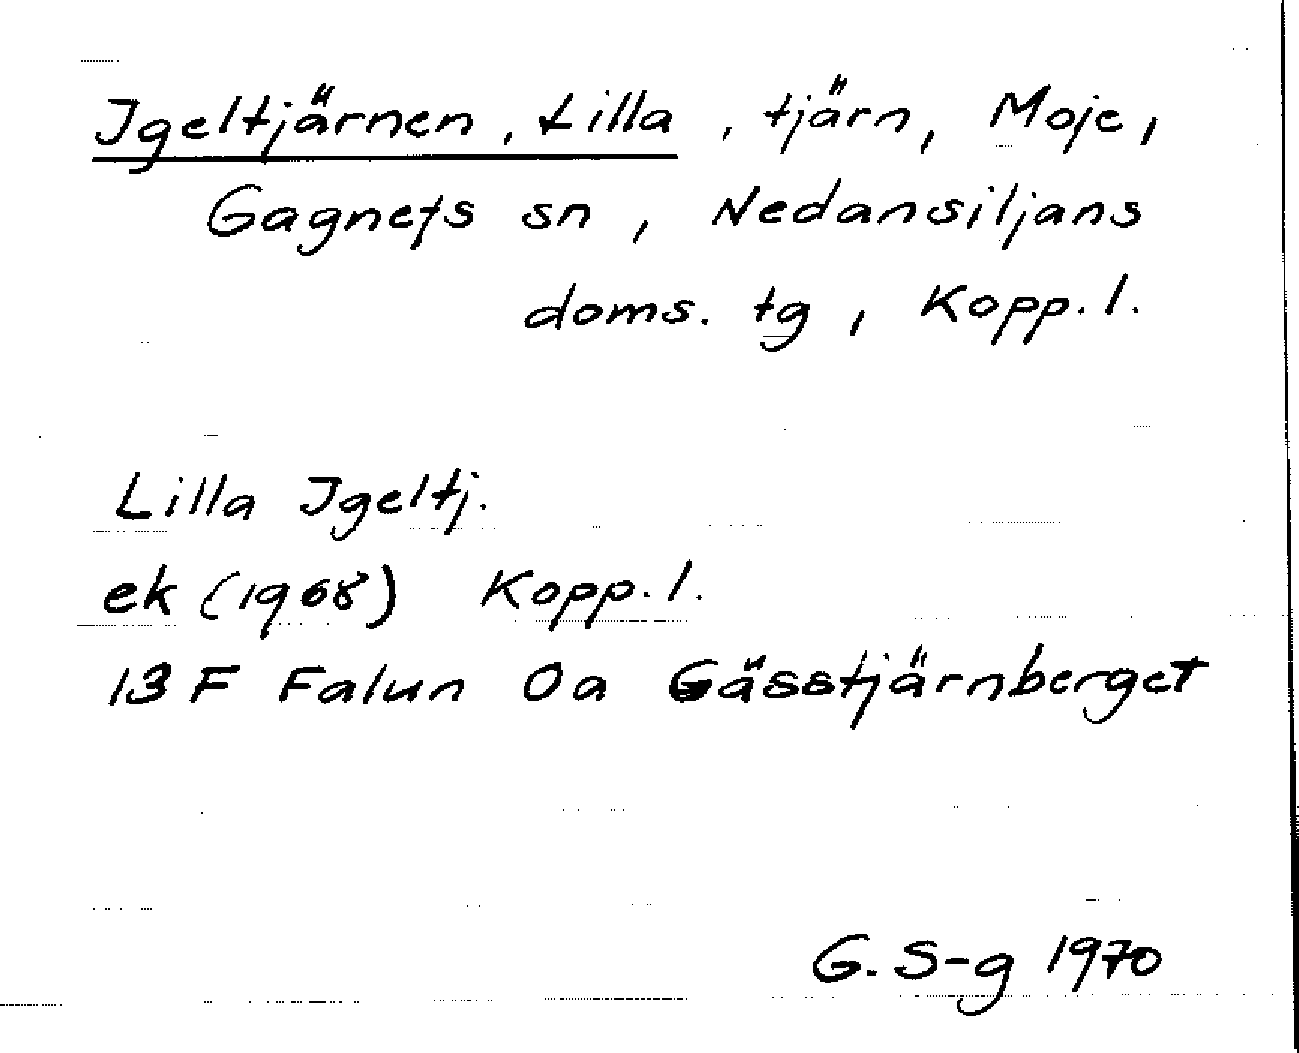 Igeltjärnen, Lilla, tjärn, Moje,
Gagnefs sn, Nedansiljans
doms. tg, Kopp. l.
Lilla Igeltj.
ek (1968) Kopp. l.
13 F Falun 0a Gässtjärnberget
G. S-g 1970